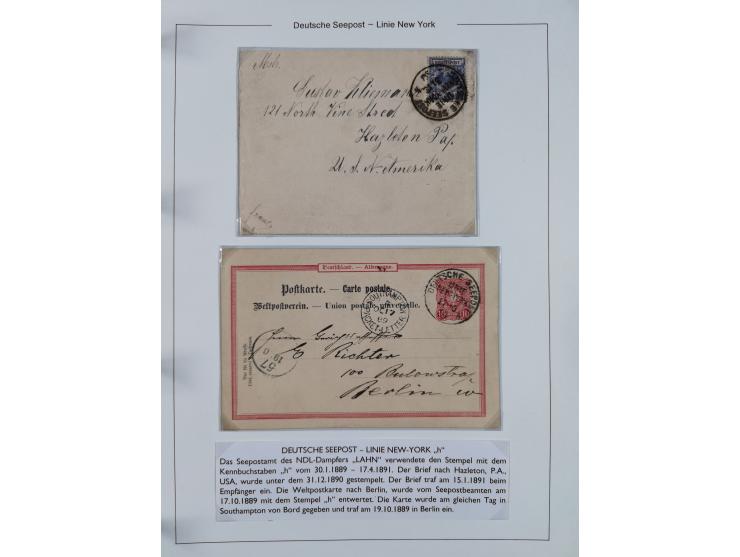 Deutsche Seepost – Linie New York
Gustav Kliemann
121 North Vine Street
Hazleton Pa.
U. S. N. Amerika
Deutschland. — Allemagne.
Postkarte. — Carte postale.
Weltpostverein. — Union postale universelle.
DEUTSCHE SEEPOST
SOUTHAMPTON
OC 17
89
SHIP LETTER
Richter
100 Bulowstraße
Berlin W
DEUTSCHE SEEPOST – LINIE NEW-YORK „h"
Das Seepostamt des NDL-Dampfers „LAHN" verwendete den Stempel mit dem
Kennbuchstaben „h" vom 30.1.1889 – 17.4.1891. Der Brief nach Hazleton, P.A.,
USA, wurde unter dem 31.12.1890 gestempelt. Der Brief traf am 15.1.1891 beim
Empfänger ein. Die Weltpostkarte nach Berlin, wurde vom Seepostbeamten am
17.10.1889 mit dem Stempel „h" entwertet. Die Karte wurde am gleichen Tag in
Southampton von Bord gegeben und traf am 19.10.1889 in Berlin ein.